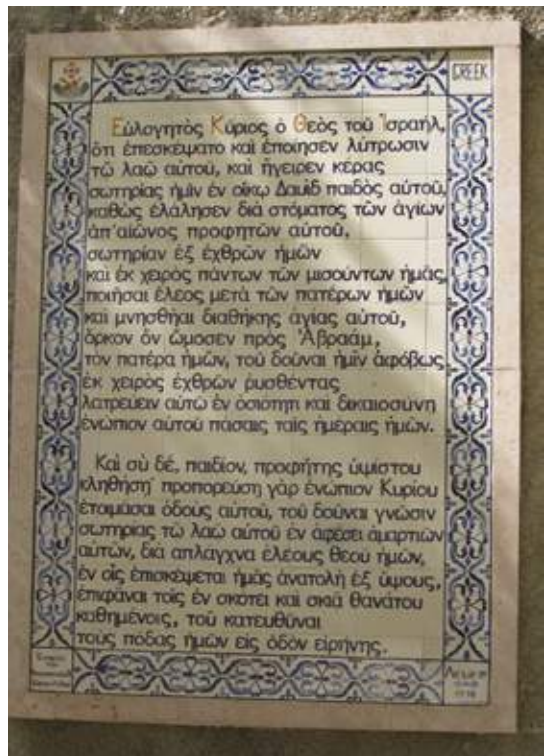 GREEK
Εὐλογητὸς Κύριος ὁ Θεὸς τοῦ Ἰσραήλ,
ὅτι ἐπεσκέψατο καὶ ἐποίησεν λύτρωσιν
τῷ λαῷ αὐτοῦ, καὶ ἤγειρεν κέρας
σωτηρίας ἡμῖν ἐν οἴκῳ Δαυὶδ παιδὸς αὐτοῦ,
καθὼς ἐλάλησεν διὰ στόματος τῶν ἁγίων
ἀπ' αἰῶνος προφητῶν αὐτοῦ,
σωτηρίαν ἐξ ἐχθρῶν ἡμῶν
καὶ ἐκ χειρὸς πάντων τῶν μισούντων ἡμᾶς,
ποιῆσαι ἔλεος μετὰ τῶν πατέρων ἡμῶν
καὶ μνησθῆναι διαθήκης ἁγίας αὐτοῦ,
ὅρκον ὃν ὤμοσεν πρὸς Ἀβραάμ,
τον πατέρα ἡμῶν, τοῦ δοῦναι ἡμῖν ἀφόβως
ἐκ χειρὸς ἐχθρῶν ρυσθέντας
λατρεύειν αὐτῷ ἐν ὁσιότητι καὶ δικαιοσύνη
ἐνώπιον αὐτοῦ πάσαις ταῖς ἡμέραις ἡμῶν.
Καὶ σὺ δέ, παιδίον, προφήτης ὑψίστου
κληθήση· προπορεύση γὰρ ἐνώπιον Κυρίου
ἑτοιμάσαι ὁδοὺς αὐτοῦ, τοῦ δοῦναι γνῶσιν
σωτηρίας τῷ λαῷ αὐτοῦ ἐν ἀφέσει ἁμαρτιῶν
αὐτῶν, διὰ απλαγχνα ἐλέους θεοῦ ἡμῶν,
ἐν οἷς ἐπισκέψεται ἡμᾶς ἀνατολὴ ἐξ ὕψους,
ἐπιφᾶναι τοῖς ἐν σκότει καὶ σκιᾷ θανάτου
καθημένοις, τοῦ κατευθῦναι
τοὺς πόδας ἡμῶν εἰς ὁδὸν εἰρήνης.